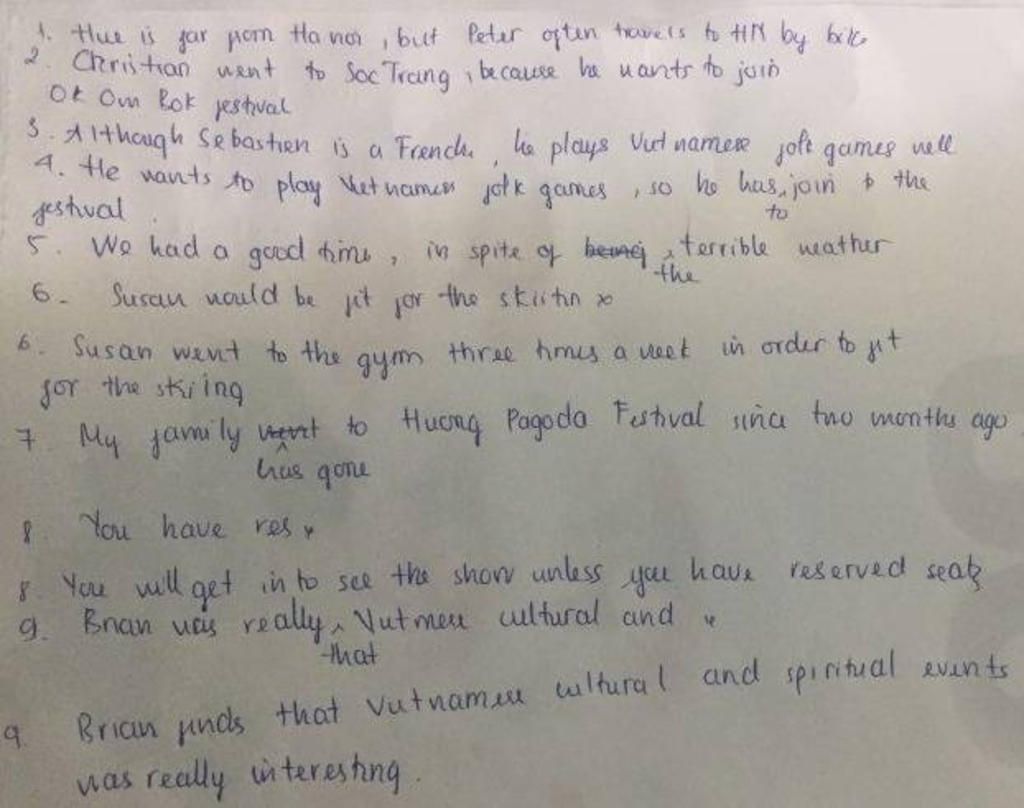 1. Hue is far from Ha noi, but Peter often travels to HN by bike
2. Christian went to Soc Trang, because he wants to join
Ok Om Bok festival
3. Although Sebastien is a French, he plays Vietnamese folk games well
4. He wants to play Vietnamese folk games, so he has to join to the
festival.
5. We had a good time, in spite of being the terrible weather
6- Susan would be fit for the skiitin
6. Susan went to the gym three times a week in order to fit
for the skiing
7 My family went has gone to Huong Pagoda Festival since two months ago
8. You have res
8. You will get in to see the show unless you have reserved seats
9. Brian was really that Vietmese cultural and
9. Brian finds that Vietnamese cultural and spiritual events
was really interesting.